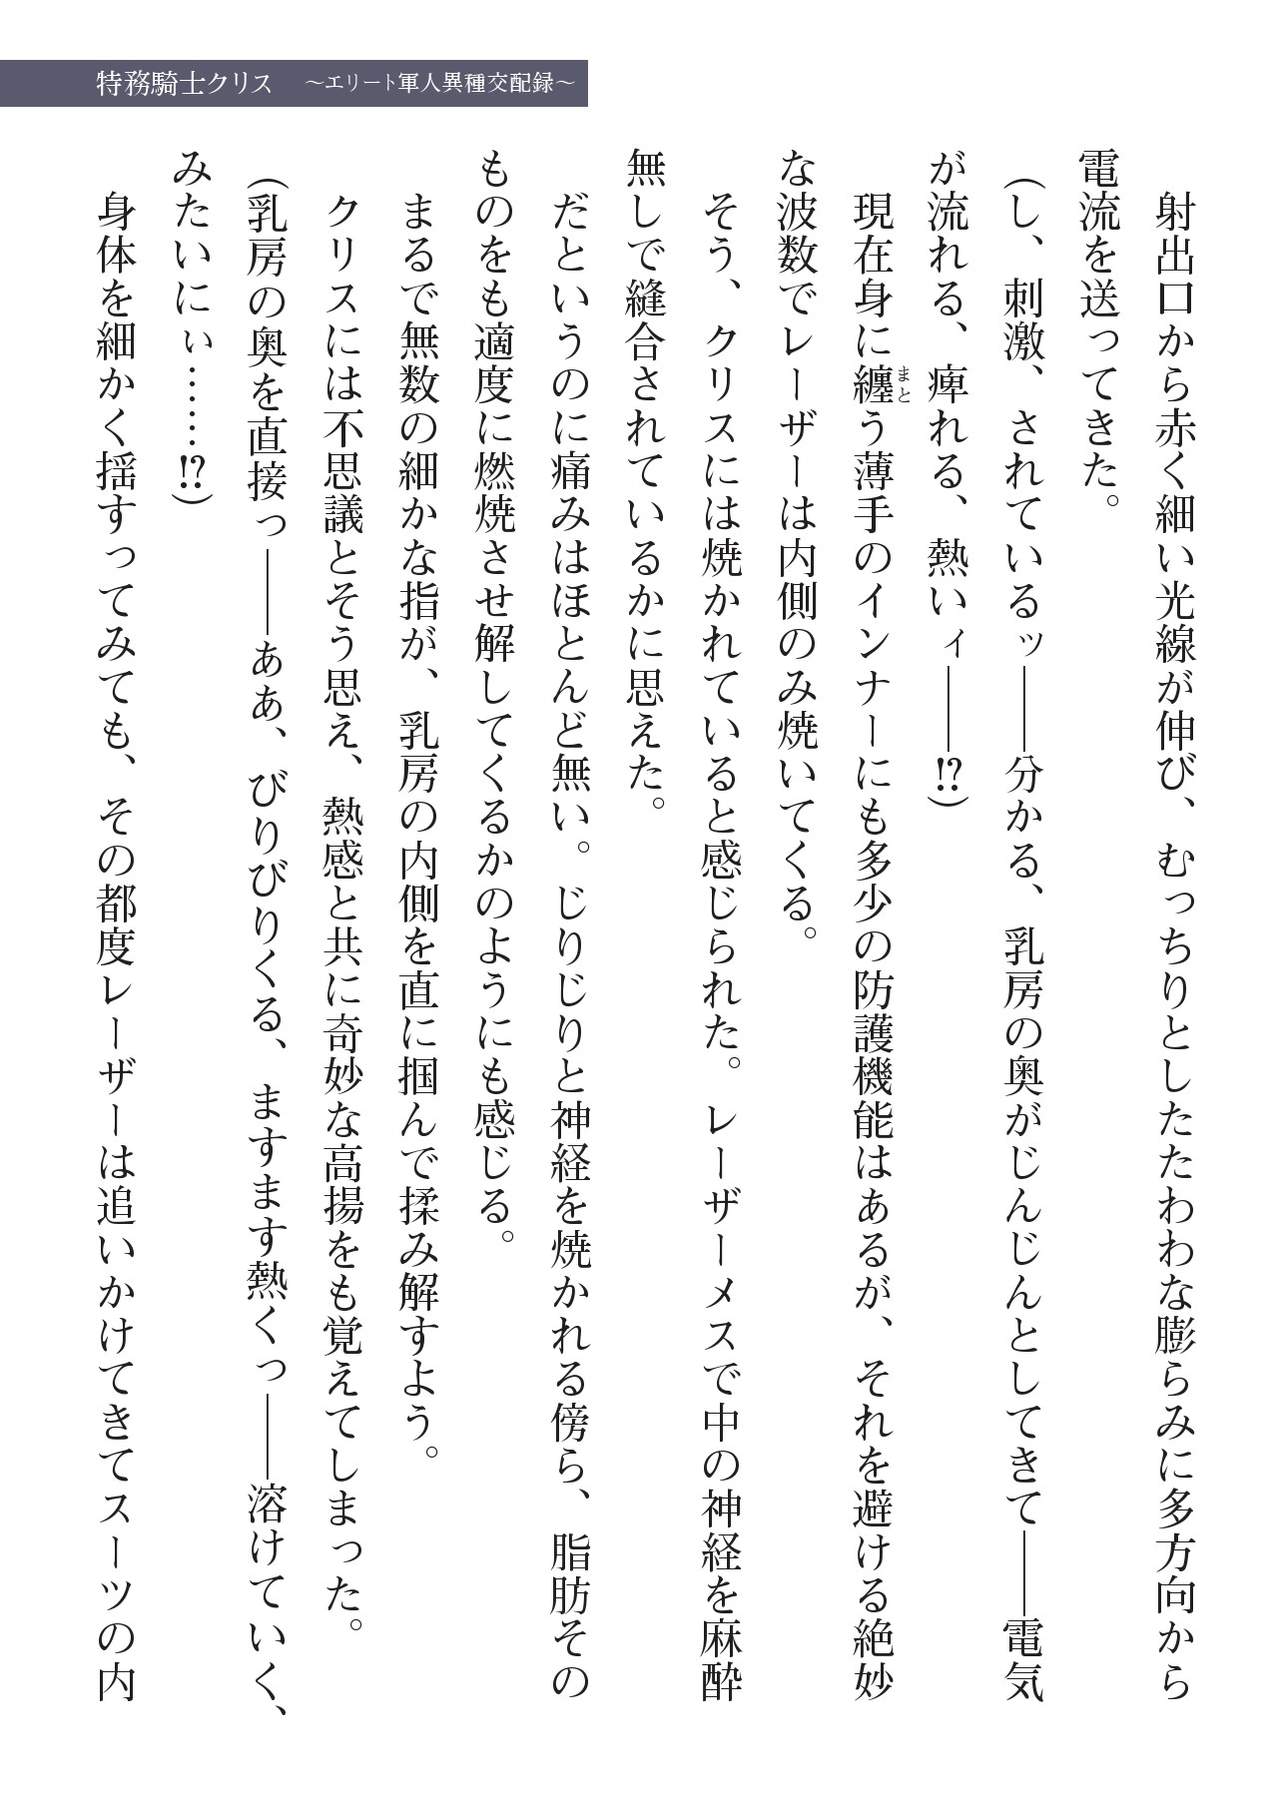 特務騎士クリス　～エリート軍人異種交配録～
　射出口から赤く細い光線が伸び、むっちりとしたたわわな膨らみに多方向から
電流を送ってきた。
（し、刺激、されているッ――分かる、乳房の奥がじんじんとしてきて――電気
が流れる、痺れる、熱いィ――!?）
　現在身に纏う薄手のインナーにも多少の防護機能はあるが、それを避ける絶妙
まと
な波数でレーザーは内側のみ焼いてくる。
　そう、クリスには焼かれていると感じられた。レーザーメスで中の神経を麻酔
無しで縫合されているかに思えた。
　だというのに痛みはほとんど無い。じりじりと神経を焼かれる傍ら、脂肪その
ものをも適度に燃焼させ解してくるかのようにも感じる。
　まるで無数の細かな指が、乳房の内側を直に掴んで揉み解すよう。
　クリスには不思議とそう思え、熱感と共に奇妙な高揚をも覚えてしまった。
（乳房の奥を直接っ――ああ、びりびりくる、ますます熱くっ――溶けていく、
みたいにぃ……!?）
　身体を細かく揺すってみても、その都度レーザーは追いかけてきてスーツの内